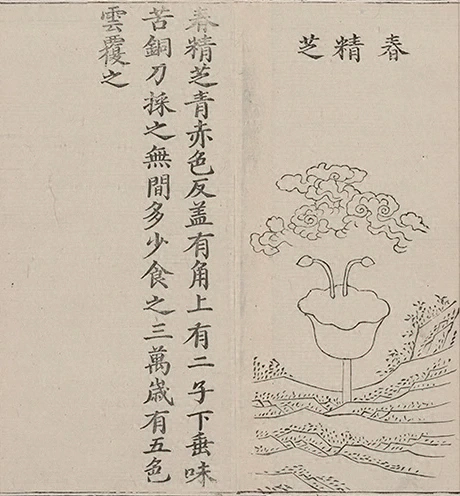 春精芝
春精芝青赤色反盖有角上有二子下垂味
苦銅刀採之無間多少食之三萬歲有五色
雲覆之